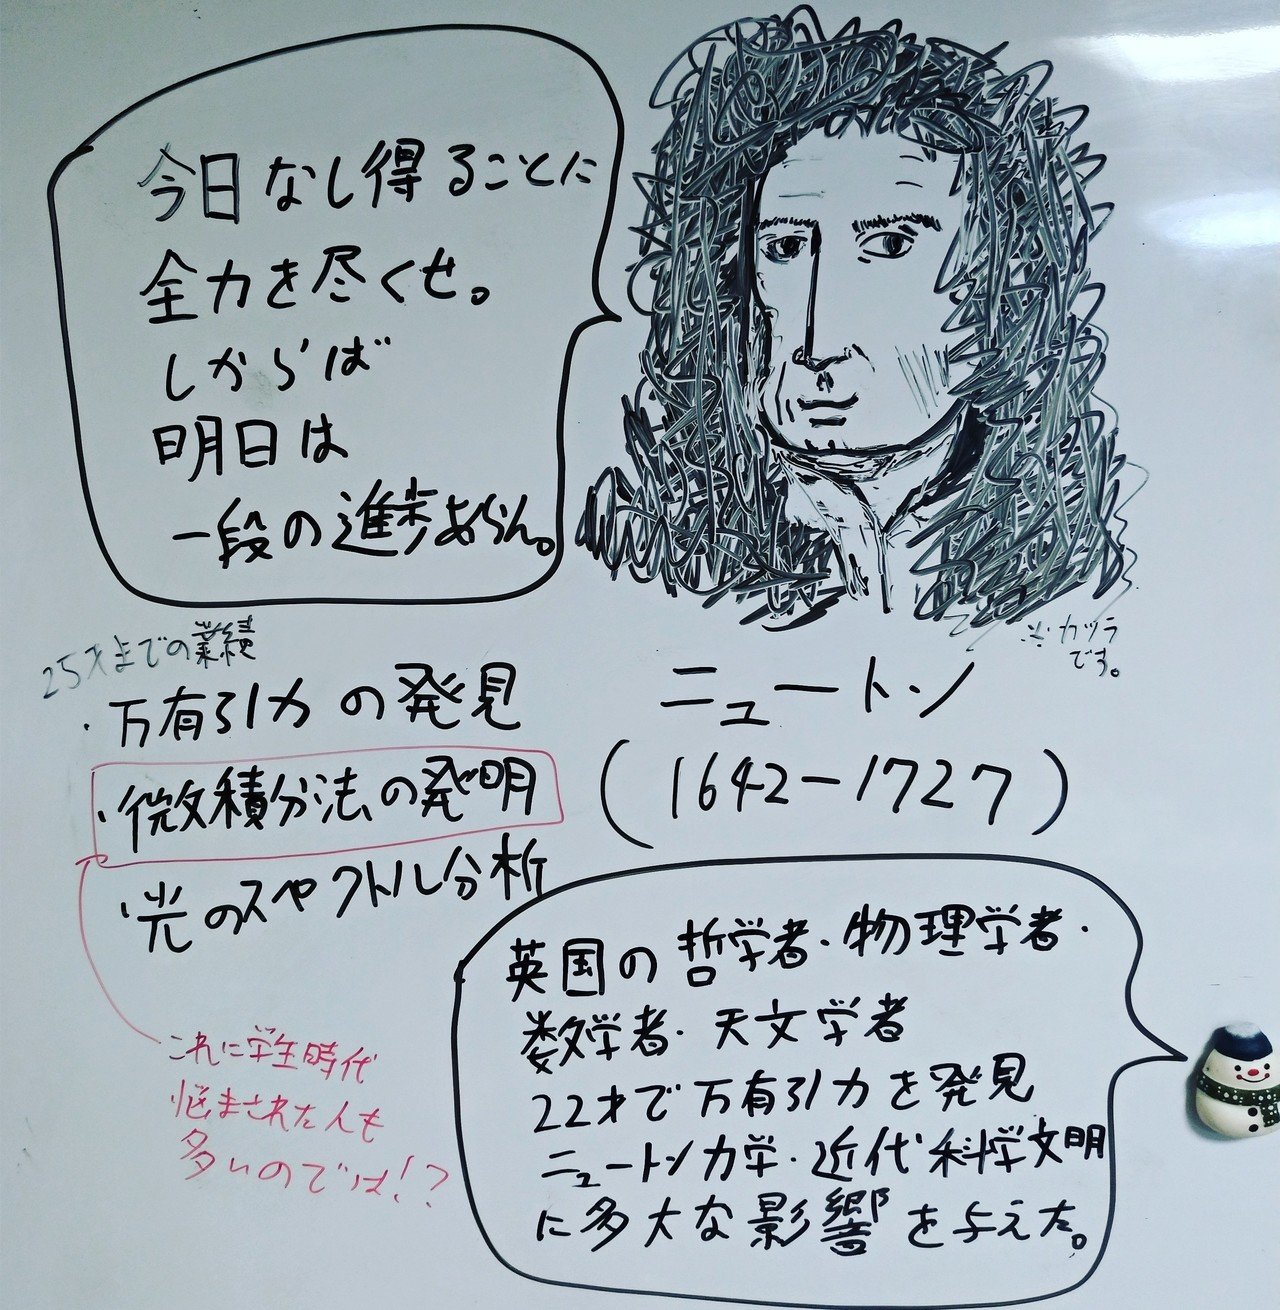 今日なし得ることに
全力を尽くせ。
しからば
明日は
一段の進歩あらん。
※カツラ
です。
25才までの業績
・万有引力の発見
・微積分法の発明
・光のスペクトル分析
これに学生時代
悩まされた人も
多いのでは!?
ニュートン
(1642-1727)
英国の哲学者・物理学者・
数学者・天文学者
22才で万有引力を発見
ニュートン力学・近代科学文明
に多大な影響を与えた。